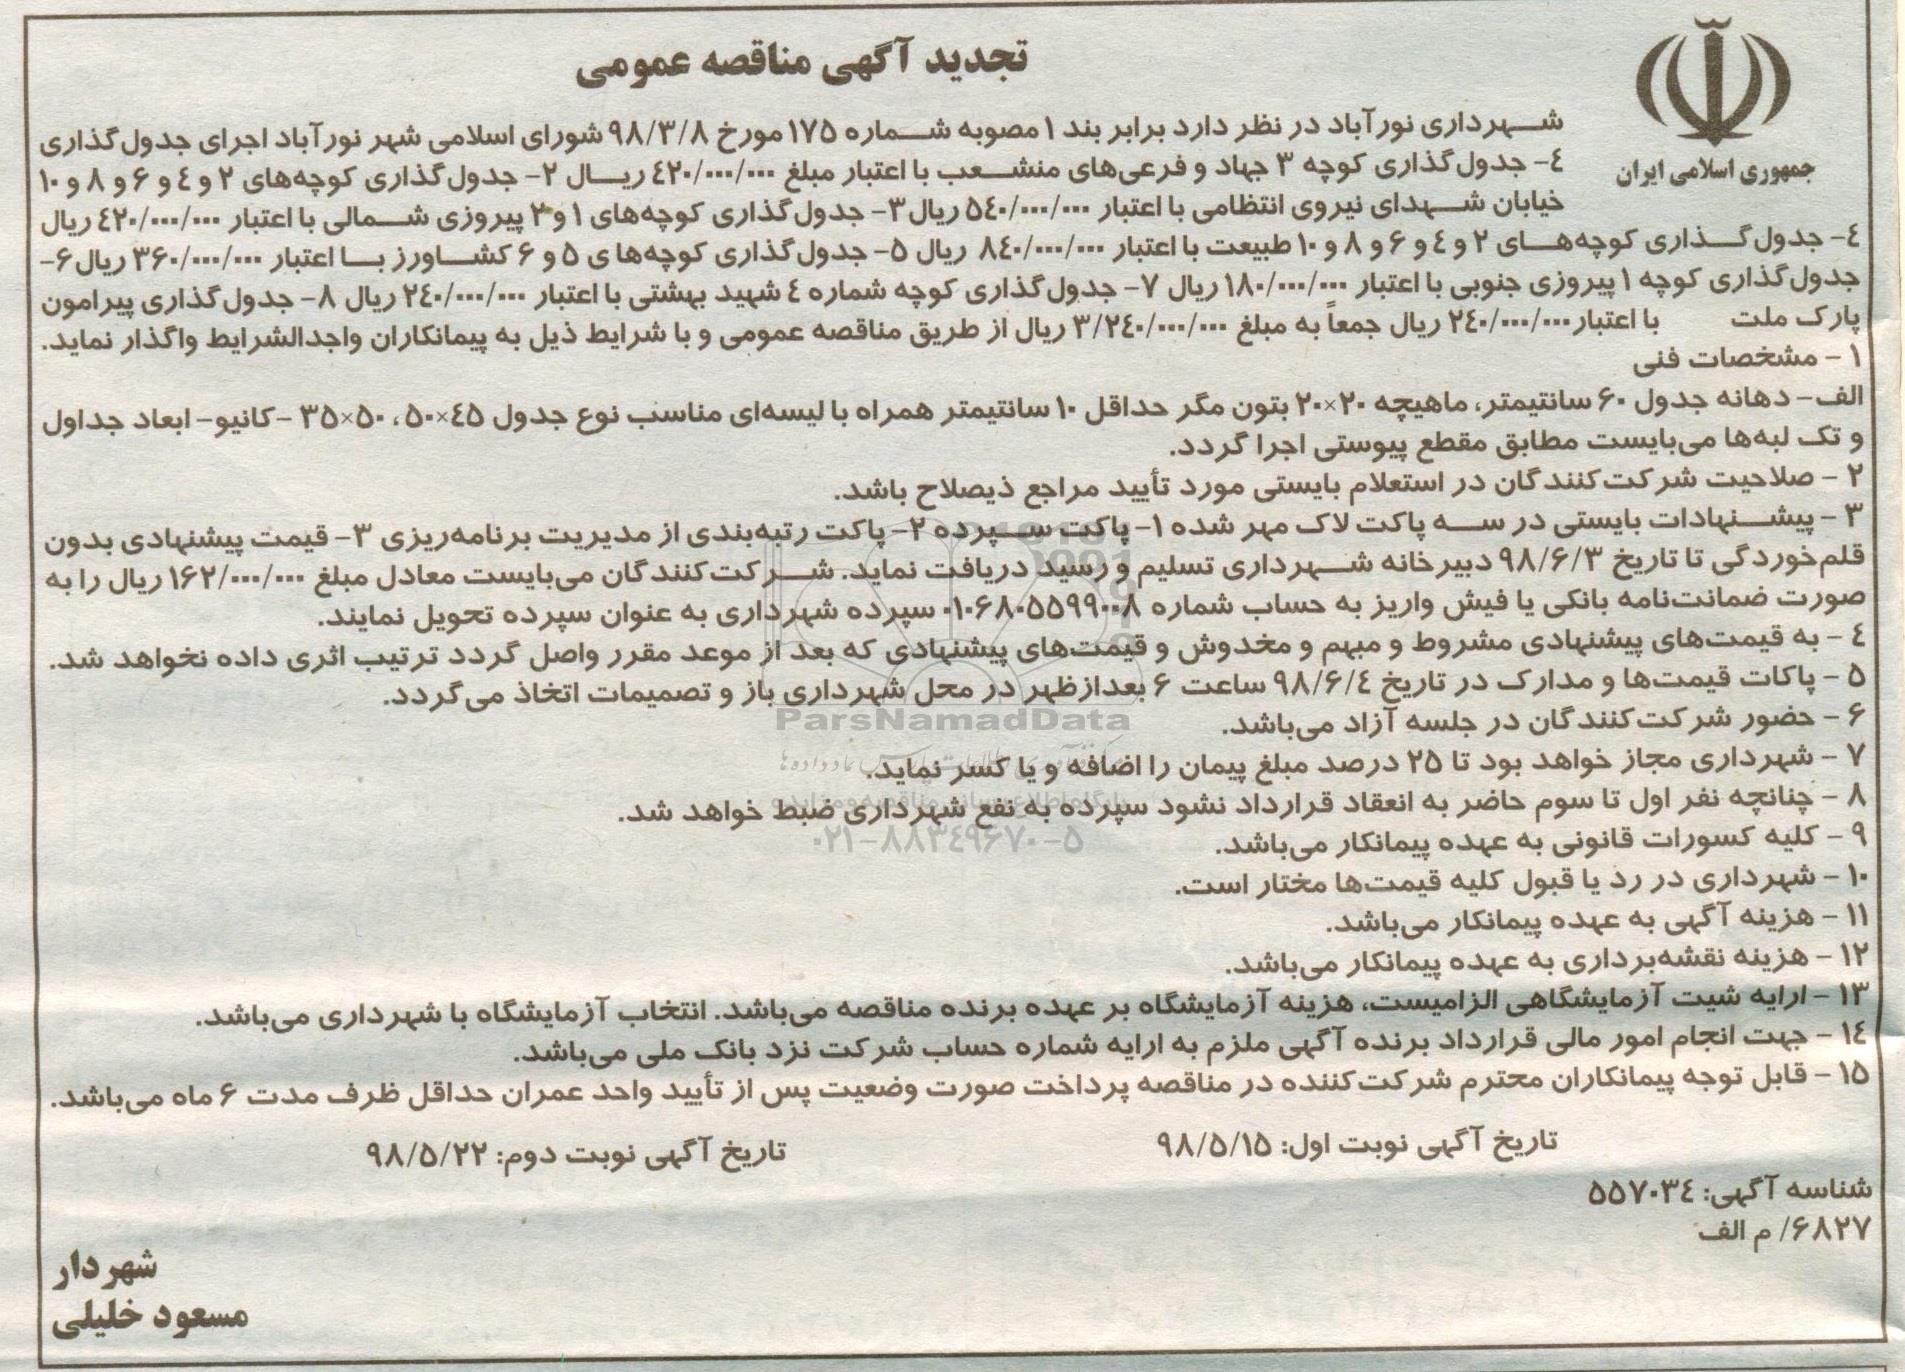 جمهوری اسلامی ایران
تجدید آگهی مناقصه عمومی
شهرداری نورآباد در نظر دارد برابر بند ۱ مصوبه شماره ۱۷۵ مورخ ۹۸/۳/۸ شورای اسلامی شهر نورآباد اجرای جدول‌گذاری
۴- جدول‌گذاری کوچه ۳ جهاد و فرعی‌های منشعب با اعتبار مبلغ ۴۲۰/۰۰۰/۰۰۰ ریال ۲- جدول‌گذاری کوچه‌های ۲ و ۴ و ۶ و ۸ و ۱۰
خیابان شهدای نیروی انتظامی با اعتبار ۵۴۰/۰۰۰/۰۰۰ ریال ۳- جدول‌گذاری کوچه‌های ۱ و ۳ پیروزی شمالی با اعتبار ۴۲۰/۰۰۰/۰۰۰ ریال
۴- جدول‌گذاری کوچه‌های ۲ و ۴ و ۶ و ۸ و ۱۰ طبیعت با اعتبار ۸۴۰/۰۰۰/۰۰۰ ریال ۵- جدول‌گذاری کوچه‌ها ی ۵ و ۶ کشاورز با اعتبار ۳۶۰/۰۰۰/۰۰۰ ریال ۶-
جدول‌گذاری کوچه ۱ پیروزی جنوبی با اعتبار ۱۸۰/۰۰۰/۰۰۰ ریال ۷- جدول‌گذاری کوچه شماره ۴ شهید بهشتی با اعتبار ۲۴۰/۰۰۰/۰۰۰ ریال ۸- جدول‌گذاری پیرامون
پارک ملت با اعتبار ۲۴۰/۰۰۰/۰۰۰ ریال جمعاً به مبلغ ۳/۲۴۰/۰۰۰/۰۰۰ ریال از طریق مناقصه عمومی و با شرایط ذیل به پیمانکاران واجدالشرایط واگذار نماید.
۱ - مشخصات فنی
الف- دهانه جدول ۶۰ سانتیمتر، ماهیچه ۲۰×۲۰ بتون مگر حداقل ۱۰ سانتیمتر همراه با لیسه‌ای مناسب نوع جدول ۴۵×۵۰، ۵۰×۳۵ -کانیو- ابعاد جداول
و تک لبه‌ها می‌بایست مطابق مقطع پیوستی اجرا گردد.
۲ - صلاحیت شرکت‌کنندگان در استعلام بایستی مورد تأیید مراجع ذیصلاح باشد.
۳ - پیشنهادات بایستی در سه پاکت لاک مهر شده ۱- پاکت سپرده ۲- پاکت رتبه‌بندی از مدیریت برنامه‌ریزی ۳- قیمت پیشنهادی بدون
قلم‌خوردگی تا تاریخ ۹۸/۶/۳ دبیرخانه شهرداری تسلیم و رسید دریافت نماید. شرکت‌کنندگان می‌بایست معادل مبلغ ۱۶۲/۰۰۰/۰۰۰ ریال را به
صورت ضمانت‌نامه بانکی یا فیش واریز به حساب شماره ۰۱۰۶۸۰۵۵۹۹۰۰۸ سپرده شهرداری به عنوان سپرده تحویل نمایند.
۴ - به قیمت‌های پیشنهادی مشروط و مبهم و مخدوش و قیمت‌های پیشنهادی که بعد از موعد مقرر واصل گردد ترتیب اثری داده نخواهد شد.
۵ - پاکات قیمت‌ها و مدارک در تاریخ ۹۸/۶/۴ ساعت ۶ بعدازظهر در محل شهرداری باز و تصمیمات اتخاذ می‌گردد.
ParsNamadData
۶ - حضور شرکت‌کنندگان در جلسه آزاد می‌باشد.
۷ - شهرداری مجاز خواهد بود تا ۲۵ درصد مبلغ پیمان را اضافه و یا کسر نماید.
۸ - چنانچه نفر اول تا سوم حاضر به انعقاد قرارداد نشود سپرده به نفع شهرداری ضبط خواهد شد.
۰۲۱-۸۸۳۴۹۶۷۰-۵
۹ - کلیه کسورات قانونی به عهده پیمانکار می‌باشد.
۱۰ - شهرداری در رد یا قبول کلیه قیمت‌ها مختار است.
۱۱ - هزینه آگهی به عهده پیمانکار می‌باشد.
۱۲ - هزینه نقشه‌برداری به عهده پیمانکار می‌باشد.
۱۳ - ارایه شیت آزمایشگاهی الزامیست، هزینه آزمایشگاه بر عهده برنده مناقصه می‌باشد. انتخاب آزمایشگاه با شهرداری می‌باشد.
۱۴ - جهت انجام امور مالی قرارداد برنده آگهی ملزم به ارایه شماره حساب شرکت نزد بانک ملی می‌باشد.
۱۵ - قابل توجه پیمانکاران محترم شرکت‌کننده در مناقصه پرداخت صورت وضعیت پس از تأیید واحد عمران حداقل ظرف مدت ۶ ماه می‌باشد.
تاریخ آگهی نوبت اول: ۹۸/۵/۱۵
تاریخ آگهی نوبت دوم: ۹۸/۵/۲۲
شناسه آگهی: ۵۵۷۰۳۴
۶۸۲۷/ م الف
شهردار
مسعود خلیلی